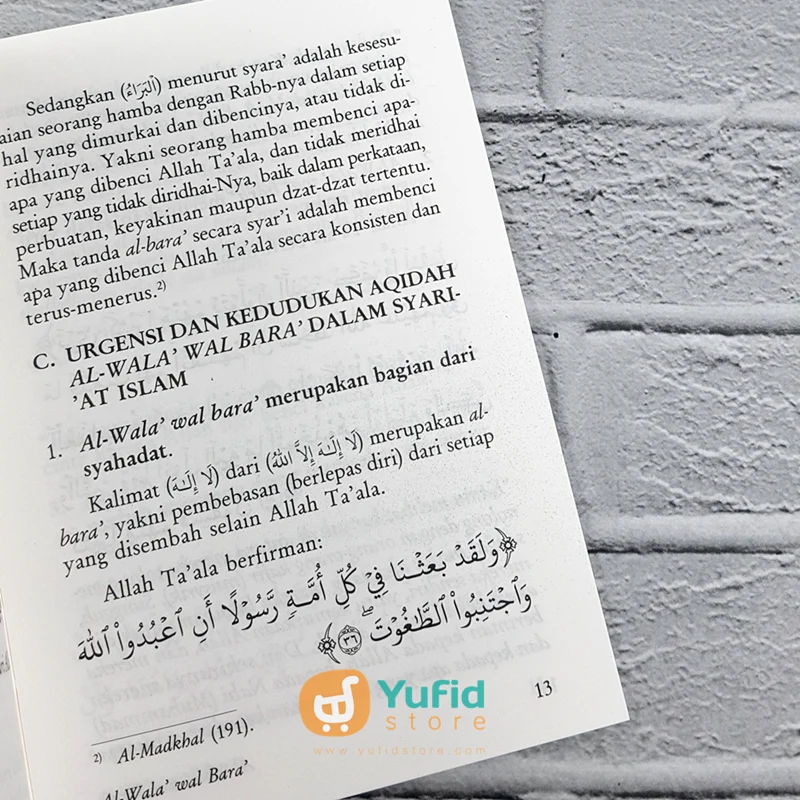 Sedangkan (الْبَرَاءُ) menurut syara' adalah kesesu-
aian seorang hamba dengan Rabb-nya dalam setiap
hal yang dimurkai dan dibencinya, atau tidak di-
ridhainya. Yakni seorang hamba membenci apa-
apa yang dibenci Allah Ta'ala, dan tidak meridhai
setiap yang tidak diridhai-Nya, baik dalam perkataan,
perbuatan, keyakinan maupun dzat-dzat tertentu.
Maka tanda al-bara' secara syar'i adalah membenci
apa yang dibenci Allah Ta'ala secara konsisten dan
terus-menerus.²⁾
C. URGENSI DAN KEDUDUKAN AQIDAH
AL-WALA' WAL BARA' DALAM SYARI-
'AT ISLAM
1. Al-Wala' wal bara' merupakan bagian dari
syahadat.
Kalimat (لَا إِلَـٰهَ) dari (لَا إِلَـٰهَ إِلاَّ اللهُ) merupakan al-
bara', yakni pembebasan (berlepas diri) dari setiap
yang disembah selain Allah Ta'ala.
Allah Ta'ala berfirman:
﴿وَلَقَدْ بَعَثْنَا فِي كُلِّ أُمَّةٍ رَّسُولًا أَنِ ٱعْبُدُوا۟ ٱللَّهَ
وَٱجْتَنِبُوا۟ ٱلطَّـٰغُوتَ ۖ ٣٦﴾
Yufid
store
www.yufidstore.com
13
²⁾ Al-Madkhal (191).
Al-Wala' wal Bara'